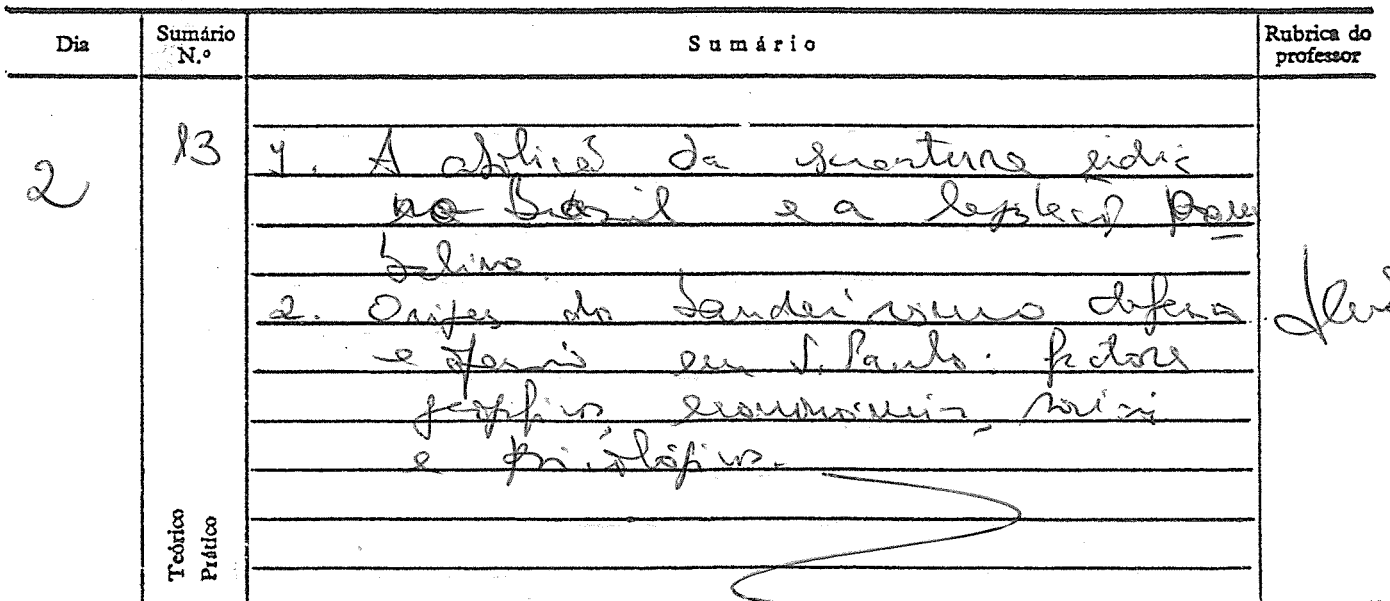 Dia Sumário N.º Sumário Rubrica do professor
2 13 1. A abolição da escravatura índia
no Brasil e a legislação pom
balina.
2. Origens do bandeirismo defensi
e em S. Paulo: factores
geográficos económicos, sociais
e psicológicos.
Teórico
Prático